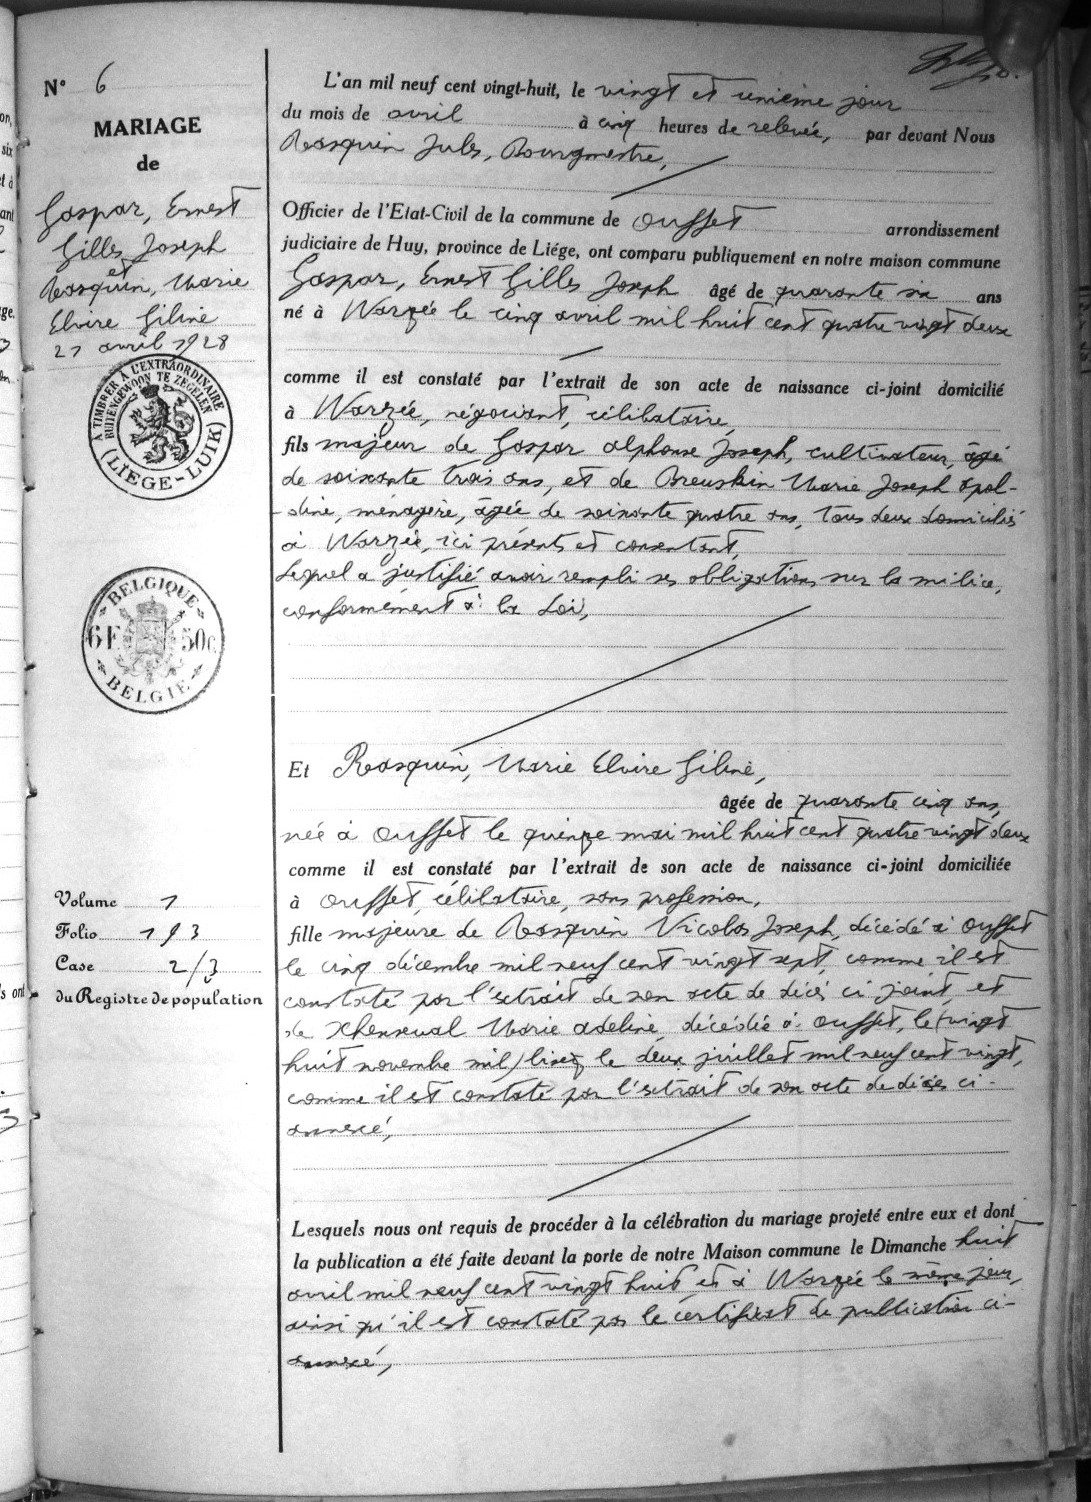 N° 6
MARIAGE
de
Gaspar, Ernest
Gilles Joseph
et
Rasquin, Marie
Elvire Giline
21 avril 1928
A TIMBRER A L'EXTRAORDINAIRE
BUITENGEWOON TE ZEGELEN
(LIEGE-LUIK)
BELGIQUE
6F 50c
BELGIE
Volume 1
Folio 193
Case 2/3
du Registre de population
L'an mil neuf cent vingt-huit, le vingt et unième jour
du mois de avril à cinq heures de relevée, par devant Nous
Rasquin Jules, Bourgmestre,
Officier de l'Etat-Civil de la commune de Ouffet arrondissement
judiciaire de Huy, province de Liége, ont comparu publiquement en notre maison commune
Gaspar, Ernest Gilles Joseph âgé de quarante six ans
né à Warzée le cinq avril mil huit cent quatre vingt deux
comme il est constaté par l'extrait de son acte de naissance ci-joint domicilié
à Warzée, négociant, célibataire,
fils majeur de Gaspar Alphonse Joseph, cultivateur, âgé
de soixante trois ans, et de Breuskin Marie Joseph Apol-
-oline, ménagère, âgée de soixante quatre ans, tous deux domiciliés
à Warzée, ici présents et consentant,
Lequel a justifié avoir rempli ses obligations sur la milice,
conformément à la Loi,
Et Rasquin, Marie Elvire Giline,
âgée de quarante cinq ans,
née à Ouffet le quinze mai mil huit cent quatre vingt deux
comme il est constaté par l'extrait de son acte de naissance ci-joint domiciliée
à Ouffet, célibataire, sans profession,
fille majeure de Rasquin Nicolas Joseph, décédé à Ouffet
le cinq décembre mil neuf cent vingt sept, comme il est
constaté par l'extrait de son acte de décès ci joint, et
de Xhenseval Marie Adeline, décédée à Ouffet, le (vingt
huit novembre mil) lisez le deux juillet mil neuf cent vingt,
comme il est constaté par l'extrait de son acte de décès ci-
annexé,
Lesquels nous ont requis de procéder à la célébration du mariage projeté entre eux et dont
la publication a été faite devant la porte de notre Maison commune le Dimanche huit
avril mil neuf cent vingt huit et à Warzée le même jour,
ainsi qu'il est constaté par le certificat de publication ci-
annexé,